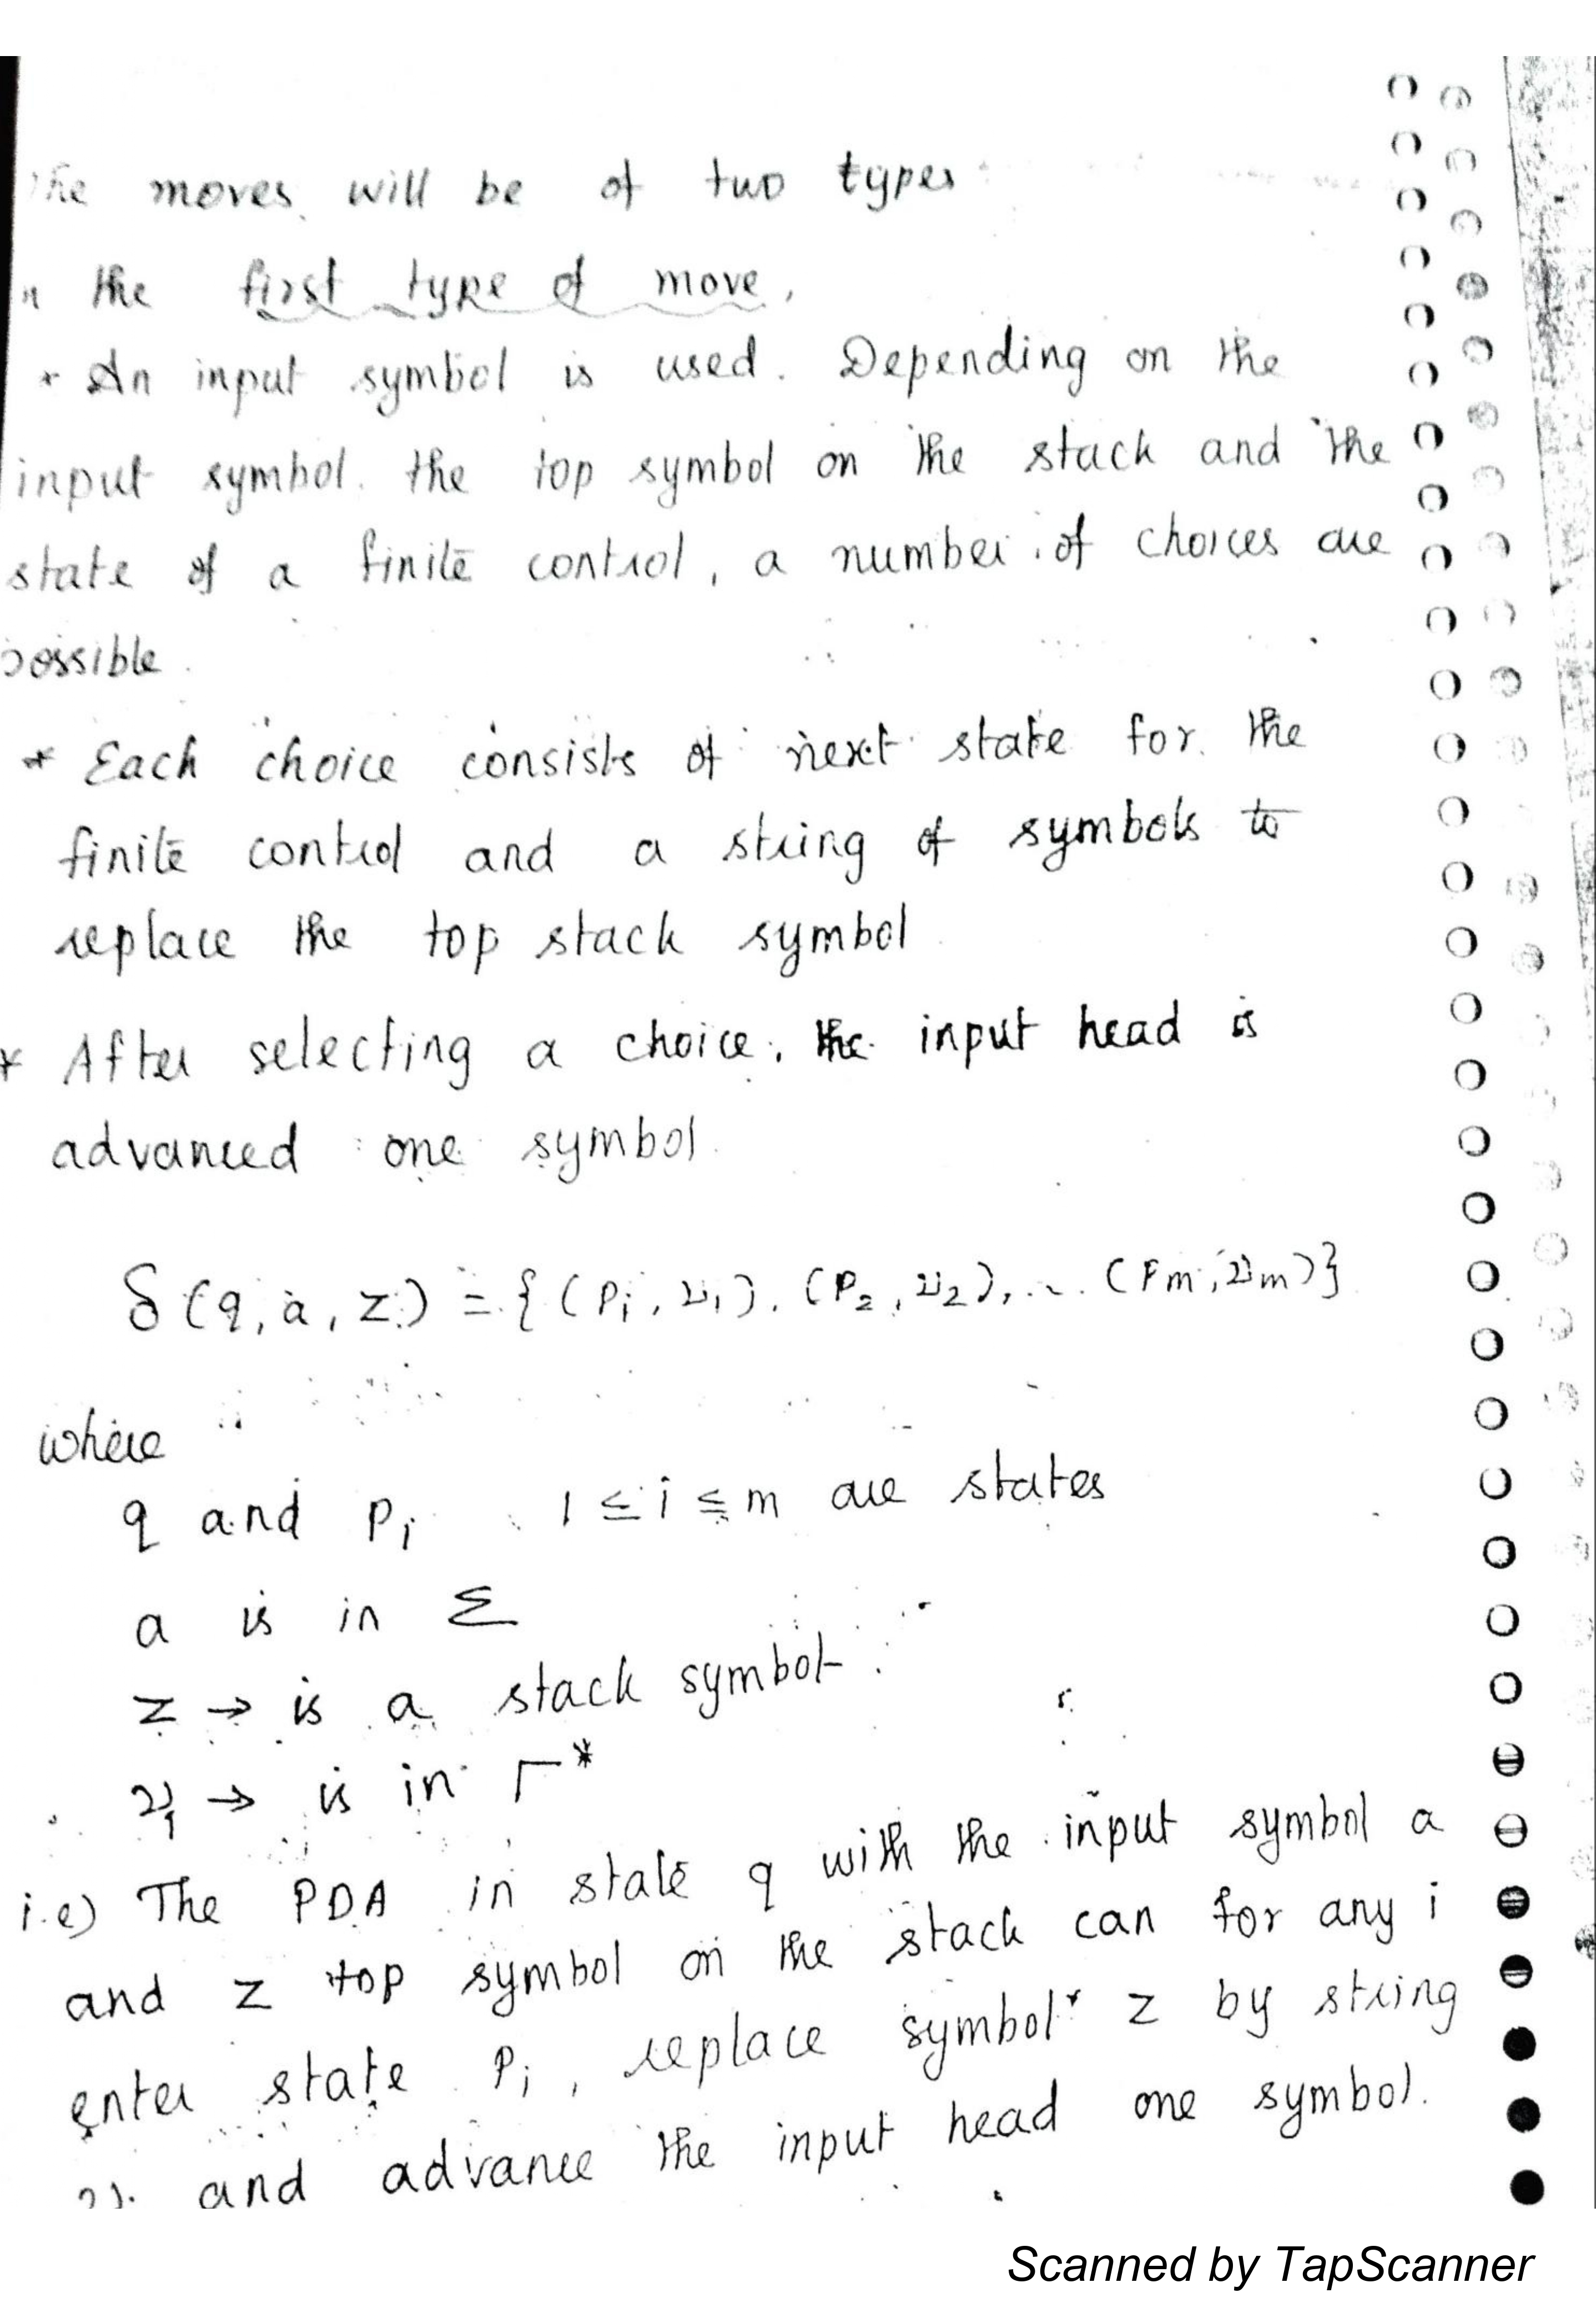 The moves will be of two types
In the first type of move,
* An input symbol is used. Depending on the
input symbol, the top symbol on the stack and the
state of a finite control, a number of choices are
possible.
* Each choice consists of next state for the
finite control and a string of symbols to
replace the top stack symbol
* After selecting a choice, the input head is
advanced one symbol.
δ(q, a, z) = {(Pi, ν1), (P2, ν2), ... (Pm, νm)}
where
q and Pi 1 ≤ i ≤ m are states
a is in Σ
z → is a stack symbol
νi → is in Γ*
i.e) The PDA in state q with the input symbol a
and z top symbol on the stack can for any i
enter state Pi, replace symbol z by string
and advance the input head one symbol.
Scanned by TapScanner